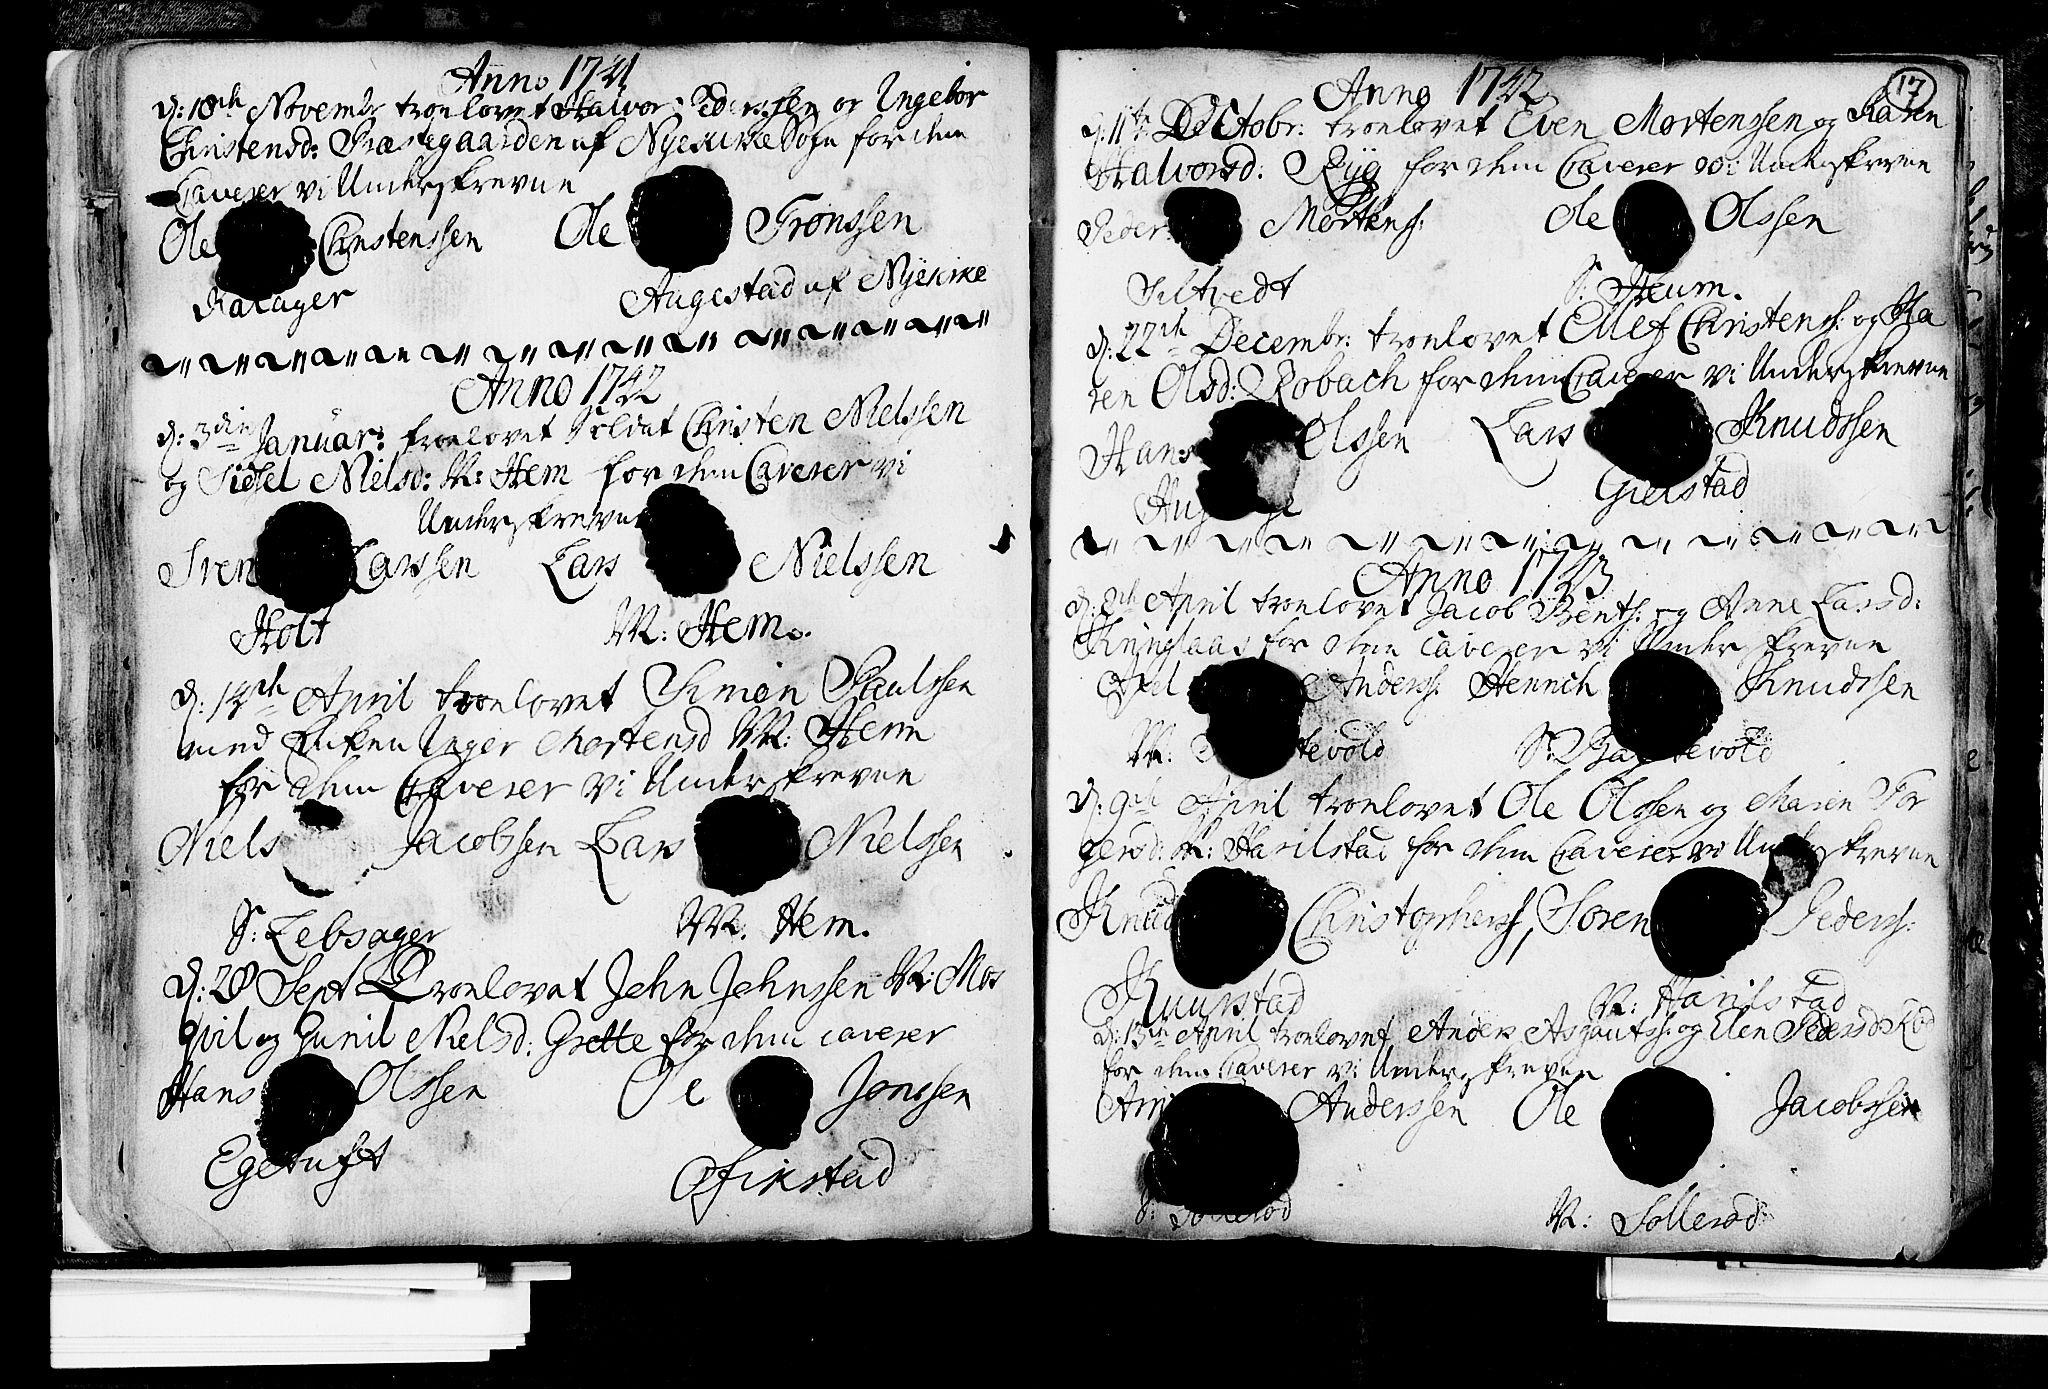 Anno 1741
d: 18de Novembr troelovet Halvor Pedersen og Ingebor
Christensd: Præstegaarden af Nyekirke Sogn for dem
Caverer vi Underskrevne
Ole Christenssen Ole Tronssen
Raaager Augestad af Nyekirke
Anno 1742
d: 3die Januar: troelovet Soldat Christen Nielssen
og Sidsel Nielsd: N: Hem for dem Caverer vi
Underskrevne
Sven Larssen Lars Nielssen
Holt N: Hem.
d: 14de April troelovet Simon Paulssen
med Enken Inger Mortensd N: Hem
for dem Caverer vi Underskrevne
Niels Jacobssen Lars Nielssen
S: Lebsager N. Hem.
d: 28 Sept Troelovet John Johnssen N: Mos
qvil og Gunil Nielsd: Grette for dem caverer
Hans Olssen Ole Jonssen
Egetuft Fikstad
17
Anno 1742
d: 11te Octobr: troelovet Even Mortenssen og Karen
Halvorsd: Ryg for dem Caverer vi Underskrevne
Peder Mortens: Ole Olssen
Siltvedt S: Heum.
d: 22de Decembr: troelovet Ellef Christens: og Ka
ren Olsd: Robach for dem Caverer vi Underskrevne
Hans Olssen Lars Knudssen
Gielstad
Anno 1743
d: 2de April troelovet Jacob Bents: og Anne Larsd:
Kringlaas for dem caverer vi Underskrevne
Axel Anderss: Henrich Knudssen
N: tevold S: Bastevold
d: 9de April troelovet Ole Olssen og Maren Tor
gersd: N: Harilstad for dem Caverer vi Underskrevne
Knud Christopherss, Søren Pederss:
Kuurstad N: Harilstad
d: 13de April troelovet Anders Asgautss: og Elen Pedersd: Rød
for dem Caverer vi Underskrevne
Anderssen Ole Jacobssen
S: Sollerød N: Sollerød: